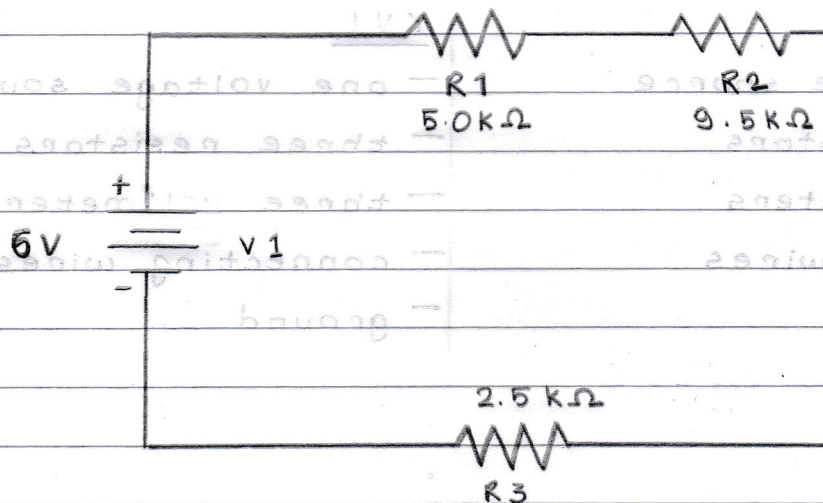 R1 R2
5.0KΩ 9.5KΩ
+
6V V1
-
2.5 KΩ
R3